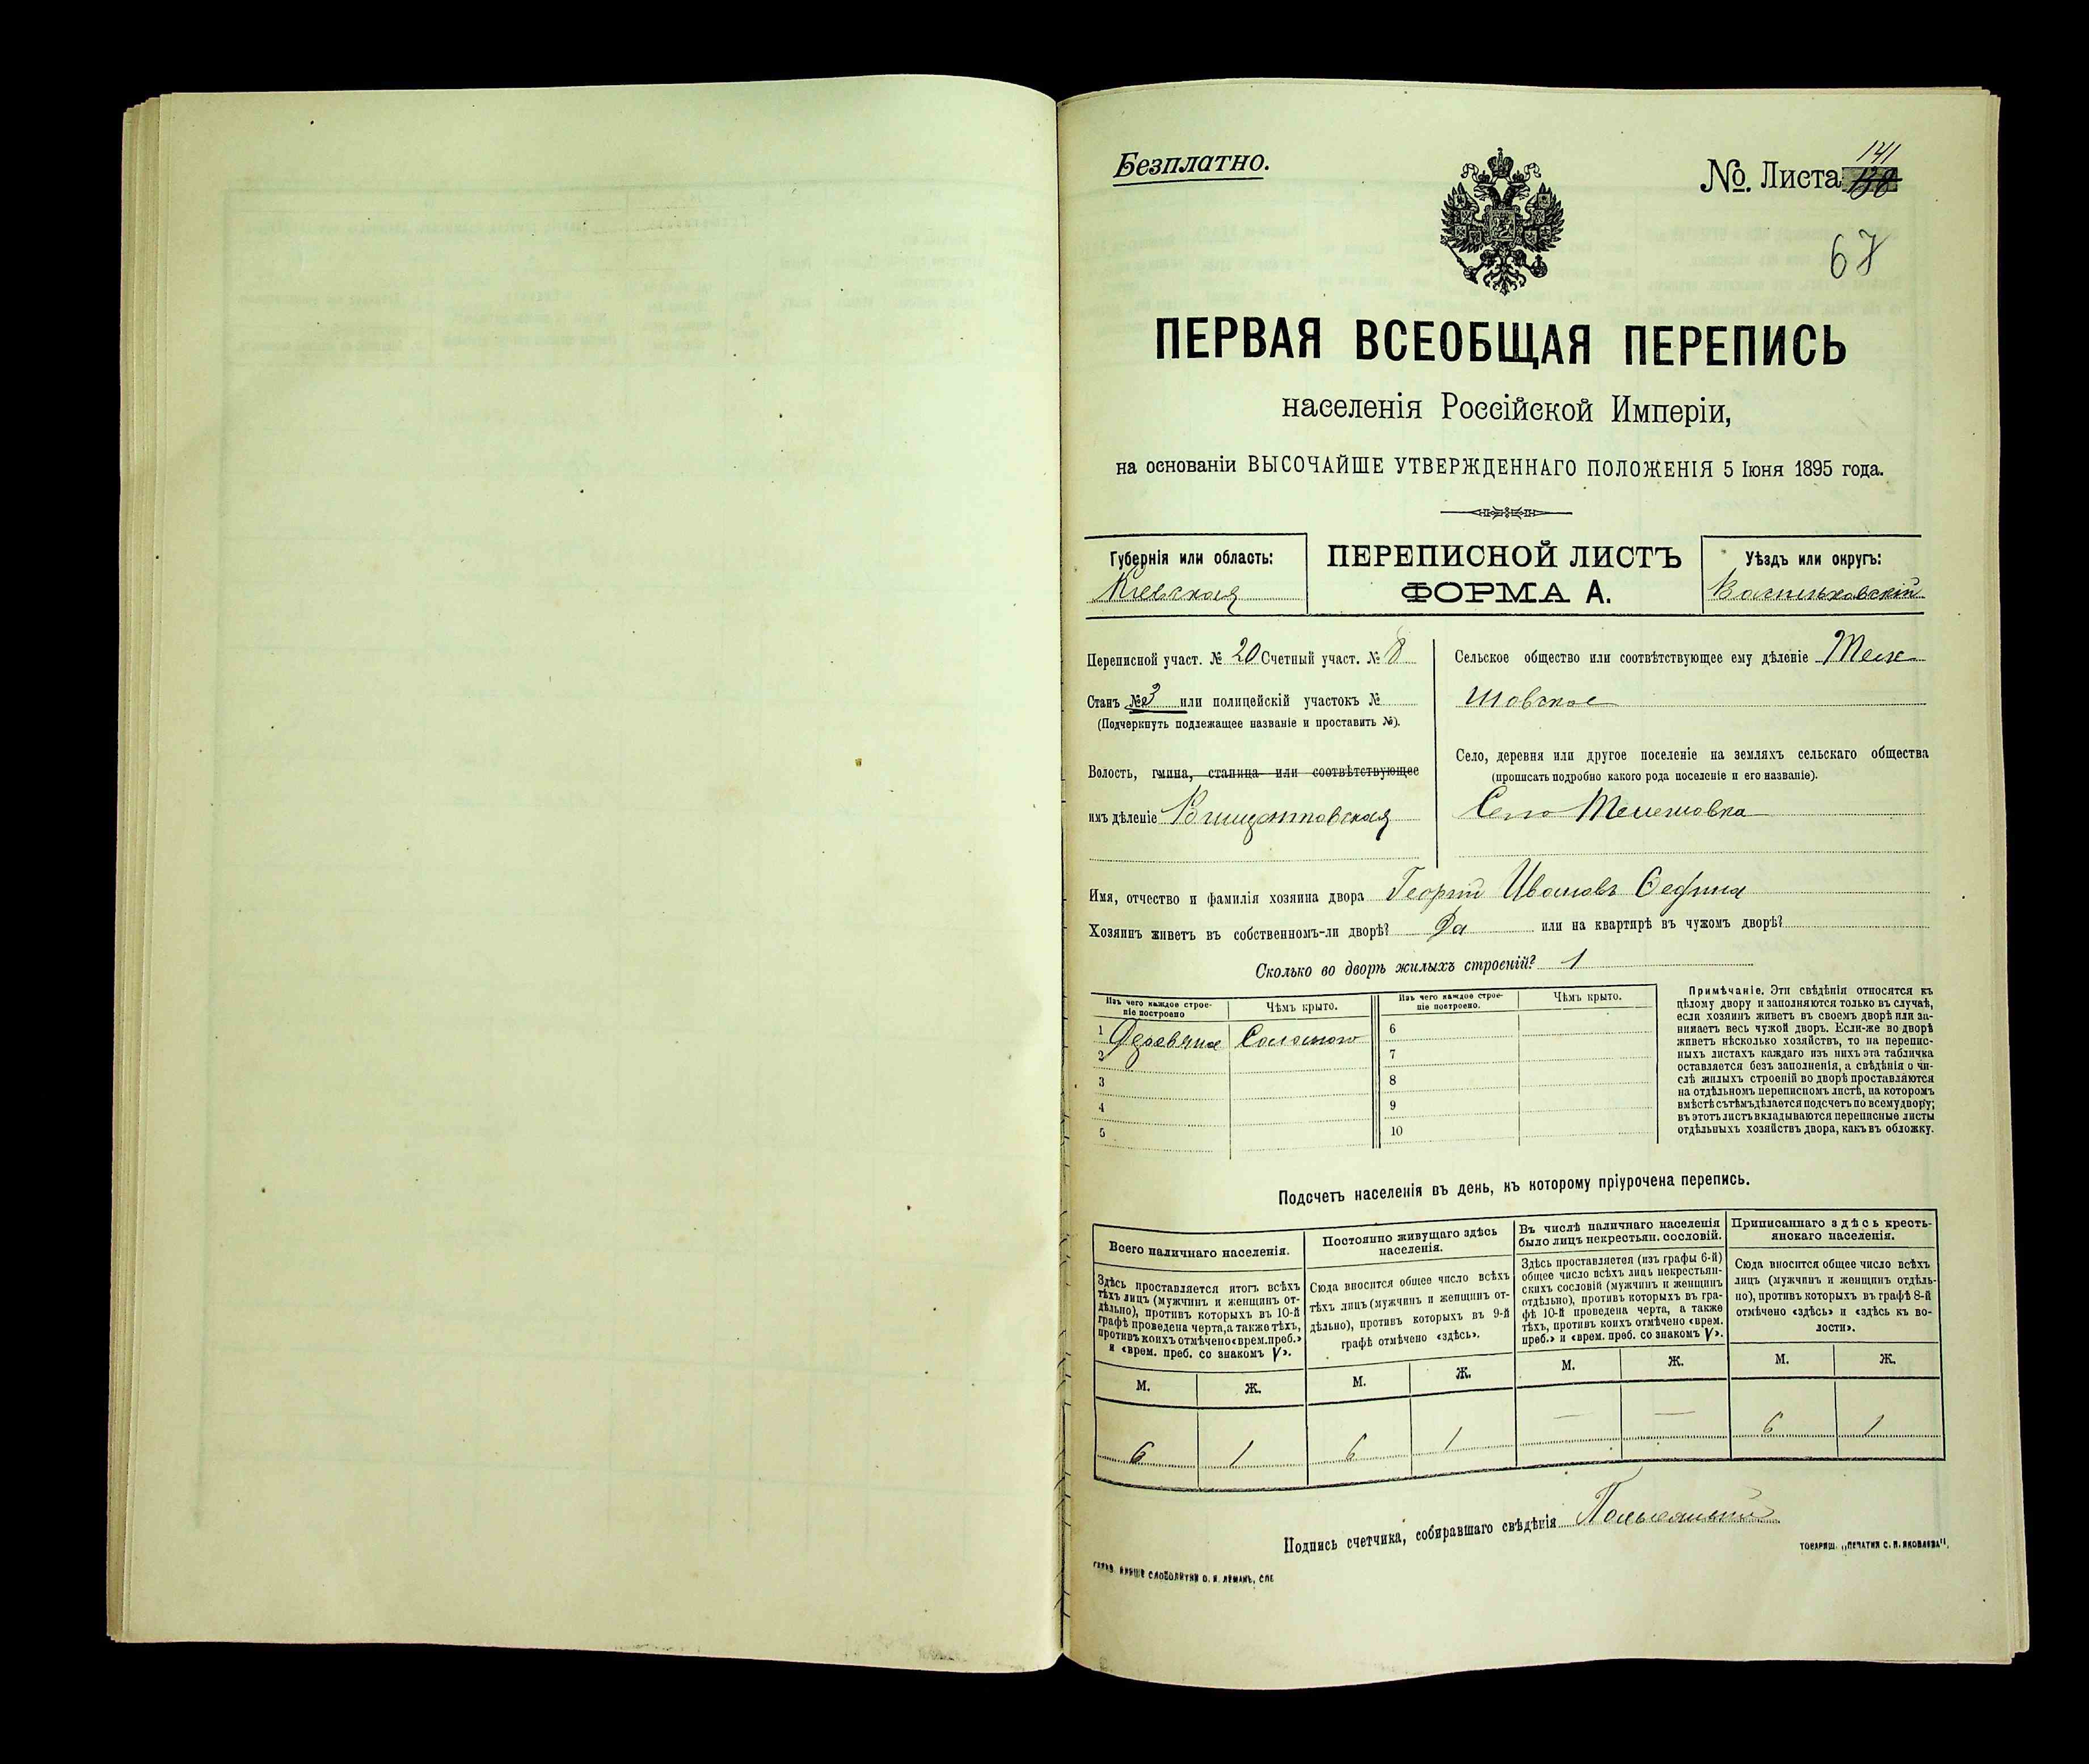 Безплатно.
№. Листа 141
138
67
ПЕРВАЯ ВСЕОБЩАЯ ПЕРЕПИСЬ
населенія Россійской Имперіи,
на основаніи ВЫСОЧАЙШЕ УТВЕРЖДЕННАГО ПОЛОЖЕНІЯ 5 Іюня 1895 года.
Губернія или область:
Кіевская
ПЕРЕПИСНОЙ ЛИСТЪ
ФОРМА А.
Уѣздъ или округъ:
Васильковскій
Переписной участ. № 20 Счетный участ. № 8
Станъ № 3 или полицейскій участокъ №
(Подчеркнуть подлежащее названіе и проставить №).
Волость, гмина, станица или соотвѣтствующее
имъ дѣленіе
Сельское общество или соотвѣтствующее ему дѣленіе Теле
шовское
Село, деревня или другое поселеніе на земляхъ сельскаго общества
(прописать подробно какого рода поселеніе и его названіе).
Село Телешовка
Имя, отчество и фамилія хозяина двора Георгій Ивановъ
Хозяинъ живетъ въ собственномъ-ли дворѣ? Да или на квартирѣ въ чужомъ дворѣ?
Сколько во дворѣ жилыхъ строеній? 1
Изъ чего каждое строе-
ніе построено
Чѣмъ крыто.
Изъ чего каждое строе-
ніе построено.
Чѣмъ крыто.
1 Деревяное Соломою 6
2 7
3 8
4 9
5 10
Примѣчаніе. Эти свѣдѣнія относятся къ
цѣлому двору и заполняются только въ случаѣ,
если хозяинъ живетъ въ своемъ дворѣ или за-
нимаетъ весь чужой дворъ. Если-же во дворѣ
живетъ нѣсколько хозяйствъ, то на перепис-
ныхъ листахъ каждаго изъ нихъ эта табличка
оставляется безъ заполненія, а свѣдѣнія о чи-
слѣ жилыхъ строеній во дворѣ проставляются
на отдѣльномъ переписномъ листѣ, на которомъ
вмѣстѣ съ тѣмъ дѣлается подсчетъ по всему двору;
въ этотъ листъ вкладываются переписные листы
отдѣльныхъ хозяйствъ двора, какъ въ обложку.
Подсчетъ населенія въ день, къ которому пріурочена перепись.
Всего наличнаго населенія.
Здѣсь проставляется итогъ всѣхъ
тѣхъ лицъ (мужчинъ и женщинъ от-
дѣльно), противъ которыхъ въ 10-й
графѣ проведена черта, а также тѣхъ,
противъ коихъ отмѣчено «врем. преб.»
и «врем. преб. со знакомъ V».
М. Ж.
6 1
Постоянно живущаго здѣсь
населенія.
Сюда вносится общее число всѣхъ
тѣхъ лицъ (мужчинъ и женщинъ от-
дѣльно), противъ которыхъ въ 9-й
графѣ отмѣчено «здѣсь».
М. Ж.
6 1
Въ числѣ наличнаго населенія
было лицъ некрестьян. сословій.
Здѣсь проставляется (изъ графы 6-й)
общее число всѣхъ лицъ некрестьян-
скихъ сословій (мужчинъ и женщинъ
отдѣльно), противъ которыхъ въ гра-
фѣ 10-й проведена черта, а также
тѣхъ, противъ коихъ отмѣчено «врем.
преб.» и «врем. преб. со знакомъ V».
М. Ж.
— —
Приписаннаго здѣсь кресть-
янскаго населенія.
Сюда вносится общее число всѣхъ
лицъ (мужчинъ и женщинъ отдѣль-
но), противъ которыхъ въ графѣ 8-й
отмѣчено «здѣсь» и «здѣсь къ во-
лости».
М. Ж.
6 1
Подпись счетчика, собиравшаго свѣдѣнія
ТОВАРИЩ. „ПЕЧАТНЯ С. П. ЯКОВЛЕВА".
СЛОВОЛИТНИ О. И. ЛЕМАНЪ, СПБ